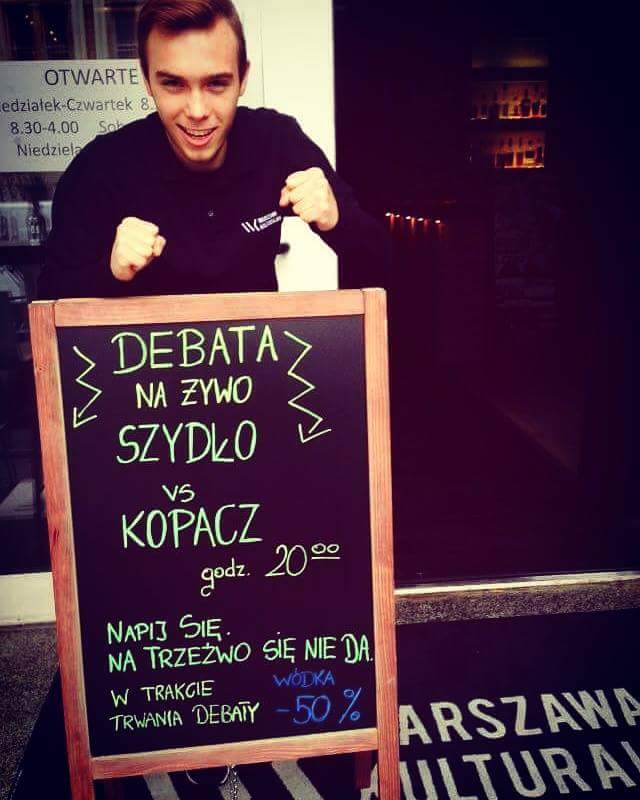 OTWARTE
edziałek-Czwartek 8.
8.30-4.00 Sob
Niedziela
DEBATA
NA ŻYWO
SZYDŁO
VS
KOPACZ
godz. 20⁰⁰
NAPIJ SIĘ.
NA TRZEŹWO SIĘ NIE DA.
W TRAKCIE
TRWANIA DEBATY
WÓDKA
-50%
ARSZAWA
ULTURAL